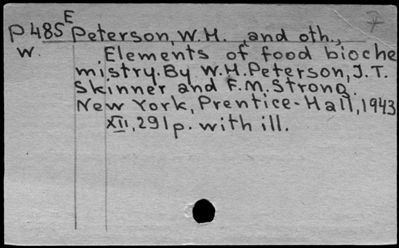 E
P485 Peterson, W.H. and oth.,
w. Elements of food bioche
mistry. By W.H. Peterson, J.T.
Skinner and F.M. Strong.
New York, Prentice-Hall, 1943
XII, 291p. with ill.